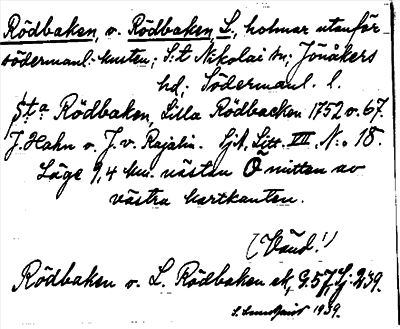 Rödbaken, o. Rödbaken L., holmar utanför
södermanl.-kusten; S:t Nikolai sn; Jönåkers
hd; Södermanl. l.
St:a Rödbaken, Lilla Rödbacken 1752 o. 67.
J. Hahn o. J. v. Rajalin. Sjk, Litt. VIII, N:o 18.
Läge 9,4 km. västen Ö mitten av
västra kartkanten.
(Vänd!)
Rödbaken o. L. Rödbaken ek, G. 57, Lj. 239.
1939.